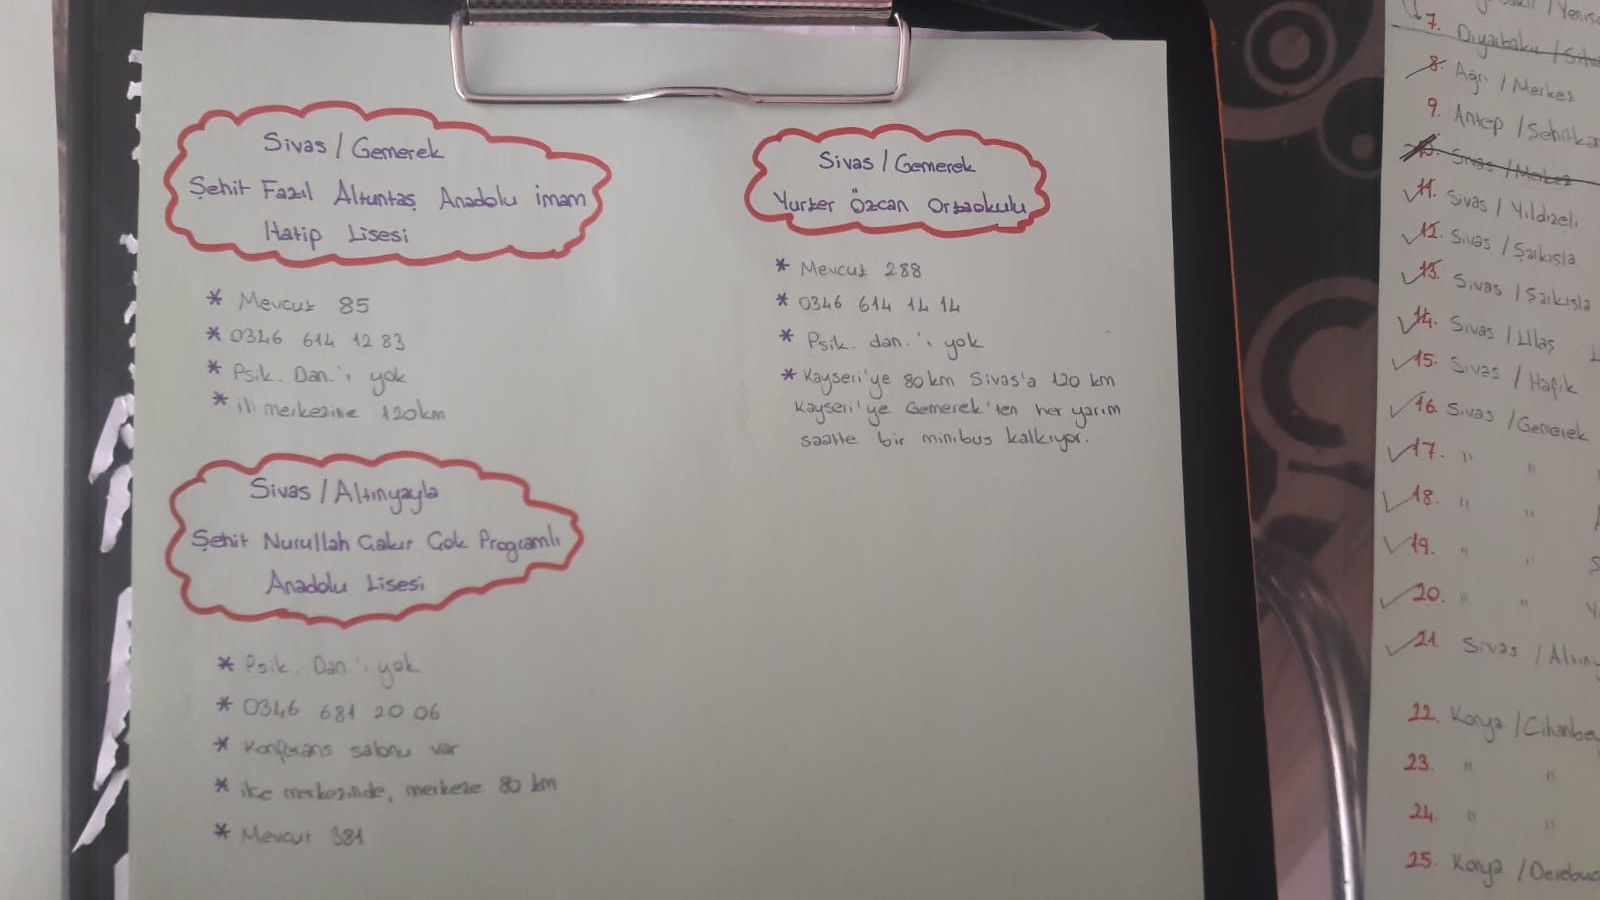 Sivas / Gemerek
Şehit Fazıl Altuntaş Anadolu imam
Hatip Lisesi
* Mevcut 85
* 0346 614 12 83
* Psik. Dan.'ı yok
* ili merkezine 120km
Sivas / Altınyayla
Şehit Nurullah Çakır Çok Programlı
Anadolu Lisesi
* Psik. Dan.'ı yok
* 0346 681 20 06
* Konferans salonu var
* ilçe merkezinde, merkeze 80 km
* Mevcut 381
Sivas / Gemerek
Yurter Özcan Ortaokulu
* Mevcut 288
* 0346 614 14 14
* Psik. dan.'ı yok
* Kayseri'ye 80 km Sivas'a 120 km
Kayseri'ye Gemerek'ten her yarım
saatte bir minibüs kalkıyor.
7. Diyarbakır /
8. Ağrı / Merkez
9. Antep /
10. Sivas / Merkez
11. Sivas / Yıldızeli
12. Sivas / Şarkışla
13. Sivas / Şarkışla
14. Sivas / Ulaş
15. Sivas / Hafik
16. Sivas / Gemerek
17. " "
18. " "
19. " "
20. " "
21. Sivas /
22. Konya /
23. " "
24. " "
25. Konya /